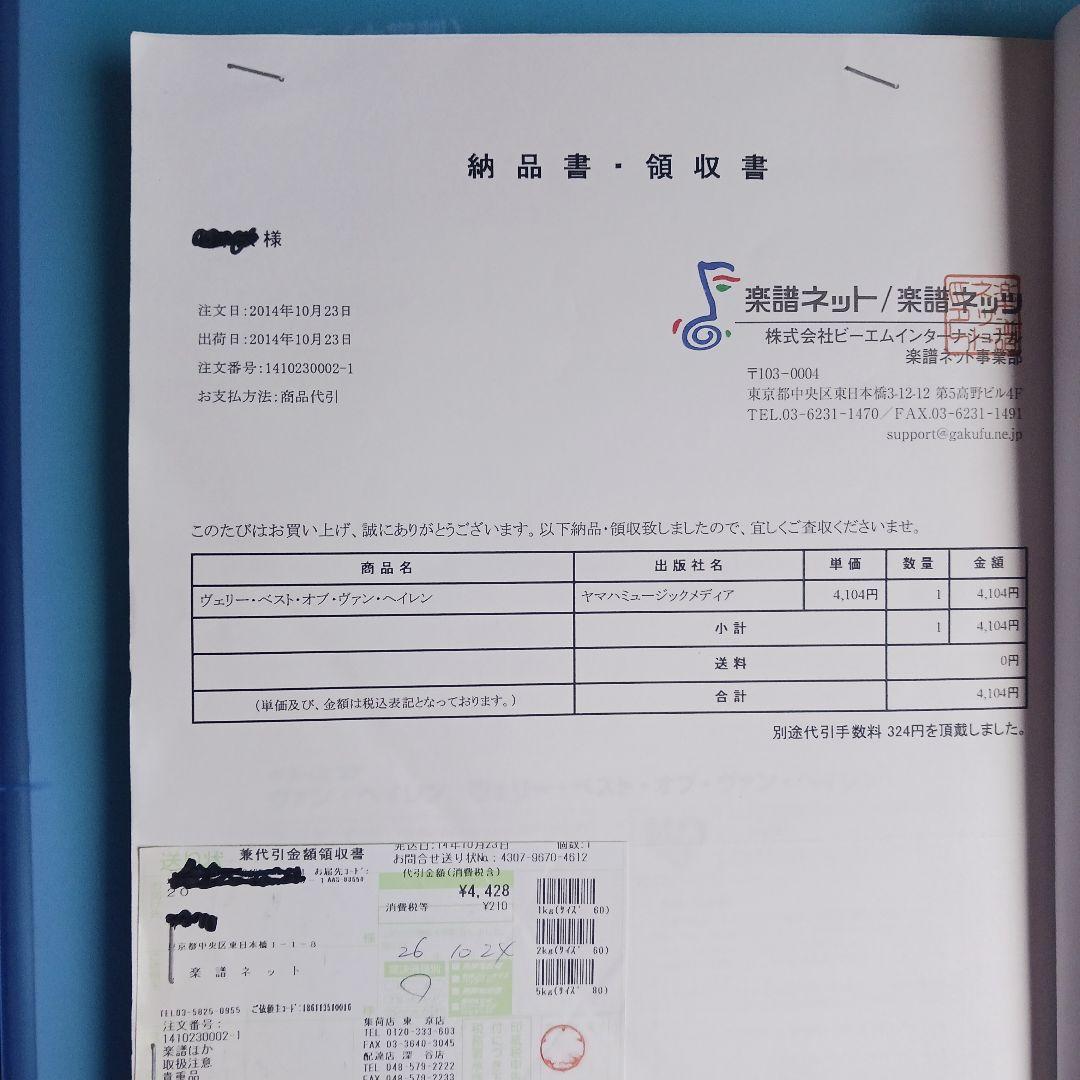 納品書・領収書
様
注文日:2014年10月23日
出荷日:2014年10月23日
注文番号:1410230002-1
お支払方法:商品代引
楽譜ネット/楽譜ネッツ
株式会社ビーエムインターナショナル
楽譜ネット事業部
〒103-0004
東京都中央区東日本橋3-12-12 第5高野ビル4F
TEL.03-6231-1470/FAX.03-6231-1491
support@gakufu.ne.jp
このたびはお買い上げ、誠にありがとうございます。以下納品・領収致しましたので、宜しくご査収くださいませ。
商品名 出版社名 単価 数量 金額
ヴェリー・ベスト・オブ・ヴァン・ヘイレン ヤマハミュージックメディア 4,104円 1 4,104円
小計 1 4,104円
送料 0円
(単価及び、金額は税込表記となっております。) 合計 4,104円
別途代引手数料 324円を頂戴しました。
送り状 兼代引金額領収書
発送日:14年10月23日 個数:1
お問合せ送り状No.:4307-9670-4612
お届先コード:
代引金額(消費税含)
¥4,428
消費税等 ¥210
1kg(サイズ 60)
2kg(サイズ 60)
5kg(サイズ 80)
26 10 24
東京都中央区東日本橋1-1-8
楽譜ネット
TEL03-5825-0955 ご依頼主コード:186113510016
注文番号:
1410230002-1
楽譜ほか
取扱注意
貴重品
集荷店 東 京店
TEL 0120-333-603
FAX 03-3640-3045
配達店 深 谷店
TEL 048-579-2222
FAX 048-579-2233